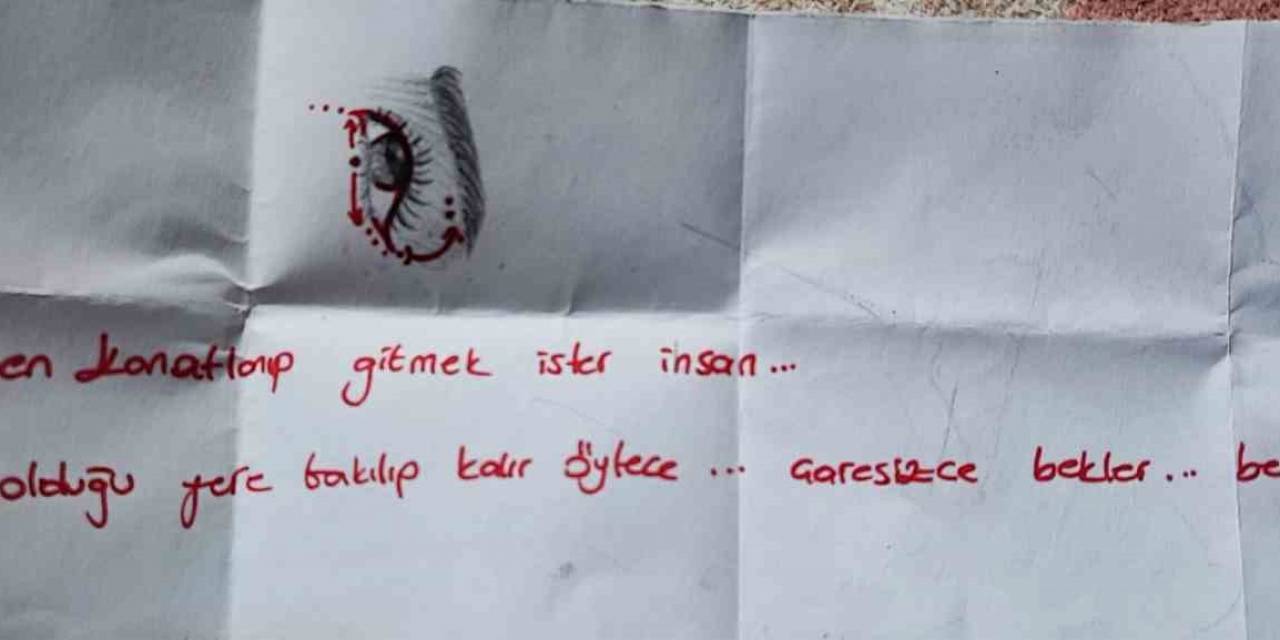 en kanatlanıp gitmek ister insan...
olduğu yere bakılıp kalır öylece ... çaresizce bekler... be